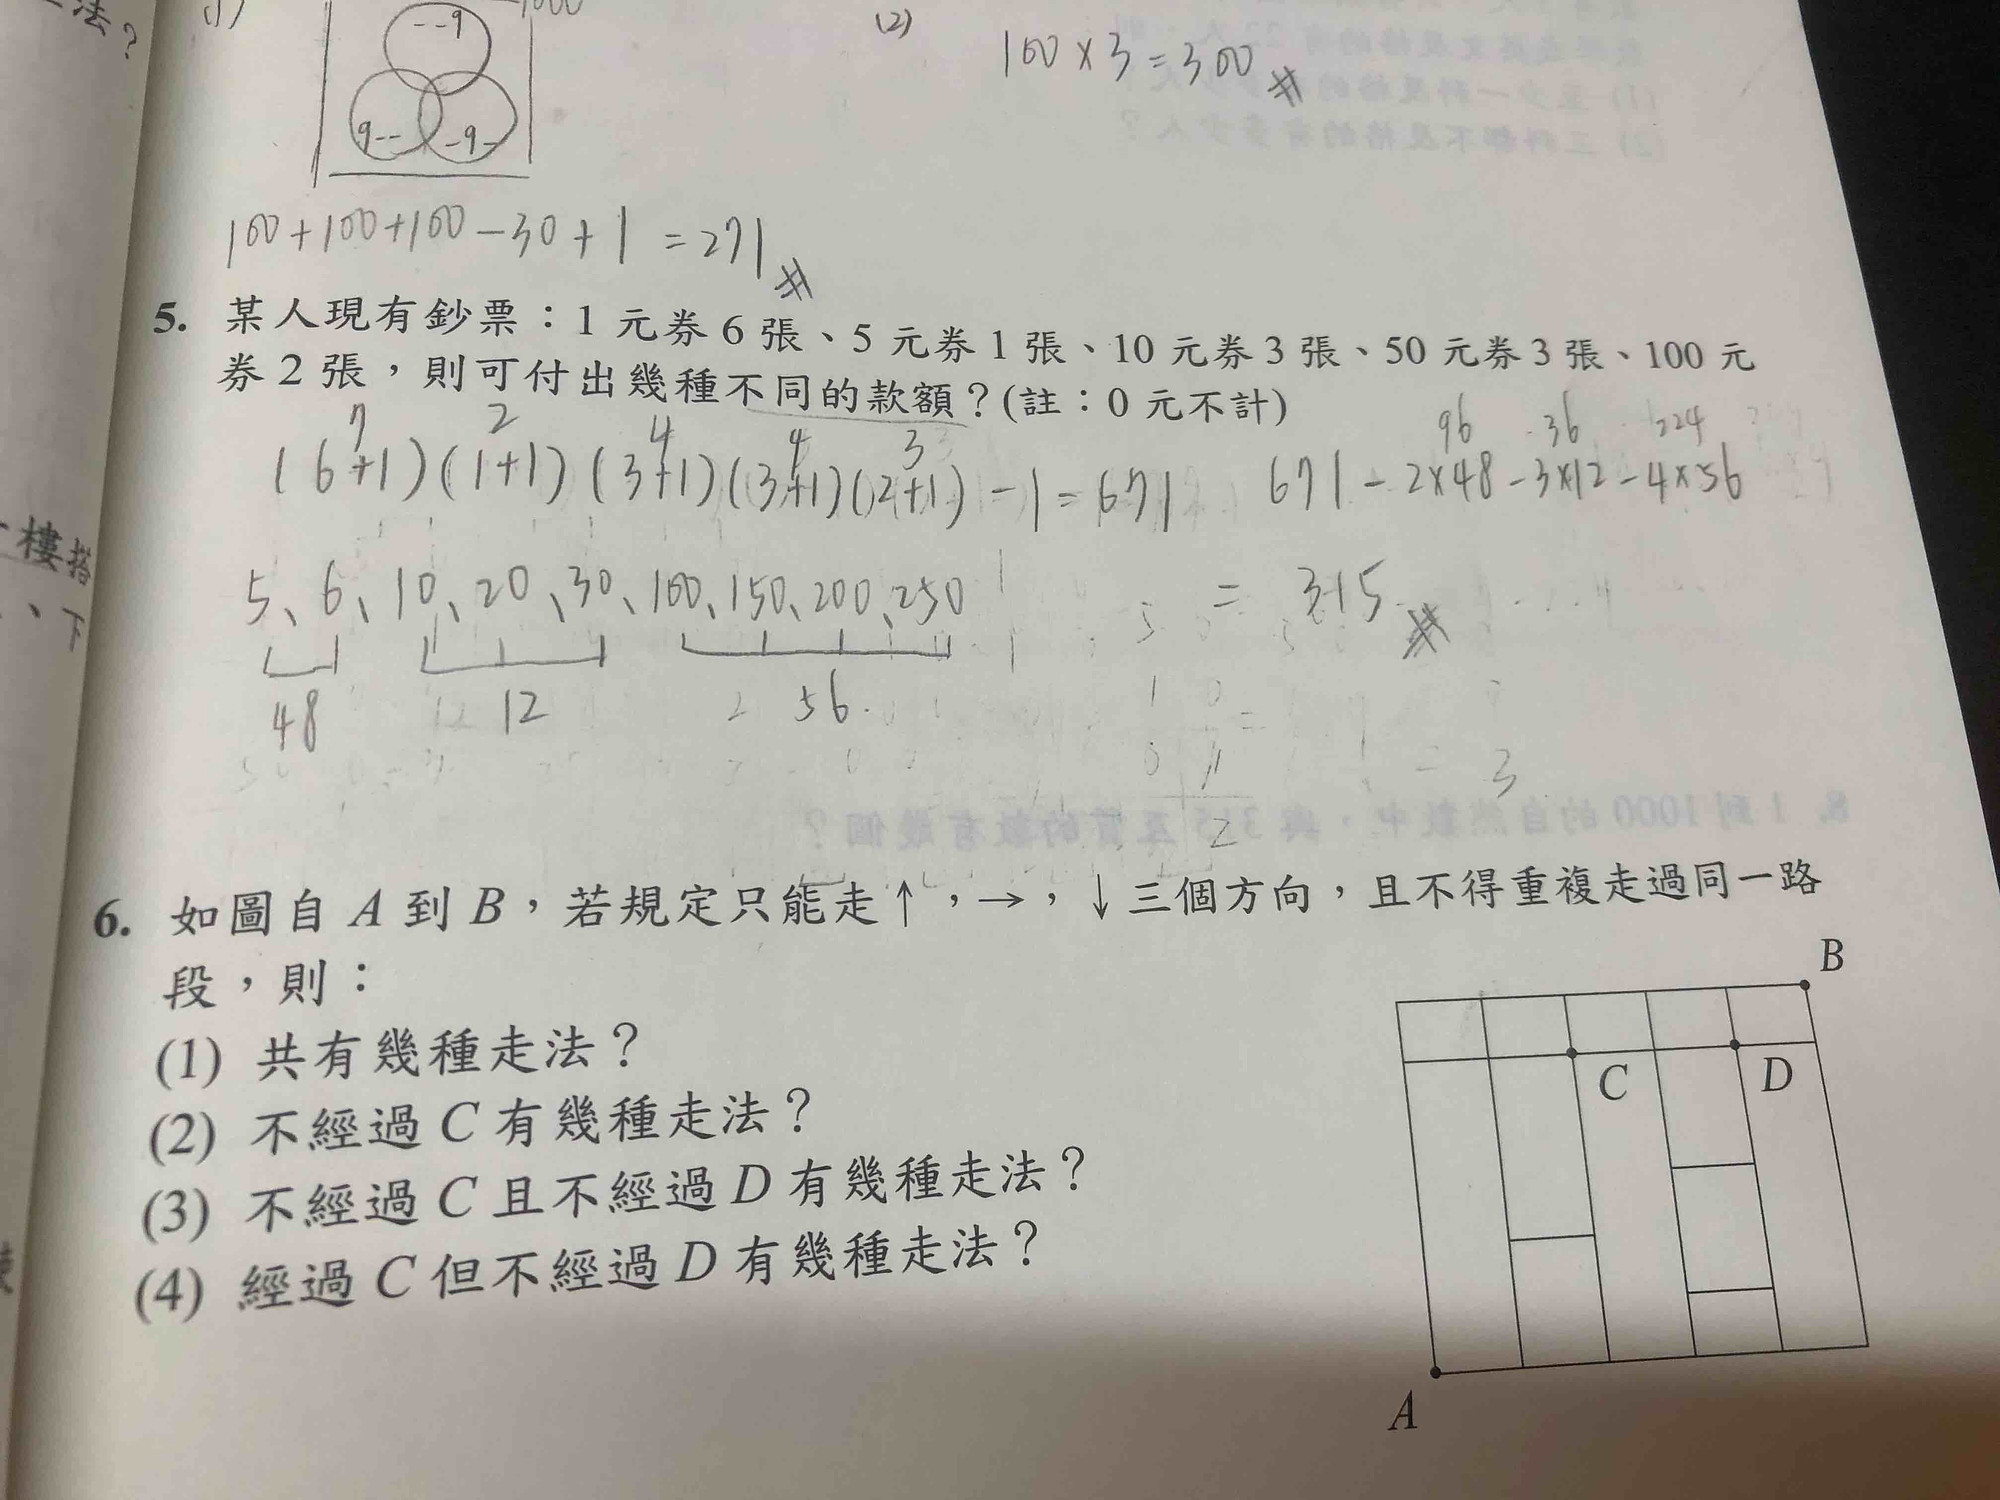 法?
(1)
1000
(2)
--9
9--
-9-
100×3=300
100+100+100-30+1=271
5. 某人現有鈔票：1 元券 6 張、5 元券 1 張、10 元券 3 張、50 元券 3 張、100 元
券 2 張，則可付出幾種不同的款額？(註：0 元不計)
7 2 4 4 3
(6+1)(1+1)(3+1)(3+1)(2+1)-1=671
96 36 224
671-2×48-3×12-4×56
=315
5、6、10、20、30、100、150、200、250
48 12 56
樓搭
、下
6. 如圖自 A 到 B，若規定只能走↑，→，↓三個方向，且不得重複走過同一路
段，則：
(1) 共有幾種走法？
(2) 不經過 C 有幾種走法？
(3) 不經過 C 且不經過 D 有幾種走法？
(4) 經過 C 但不經過 D 有幾種走法？
B
C
D
A